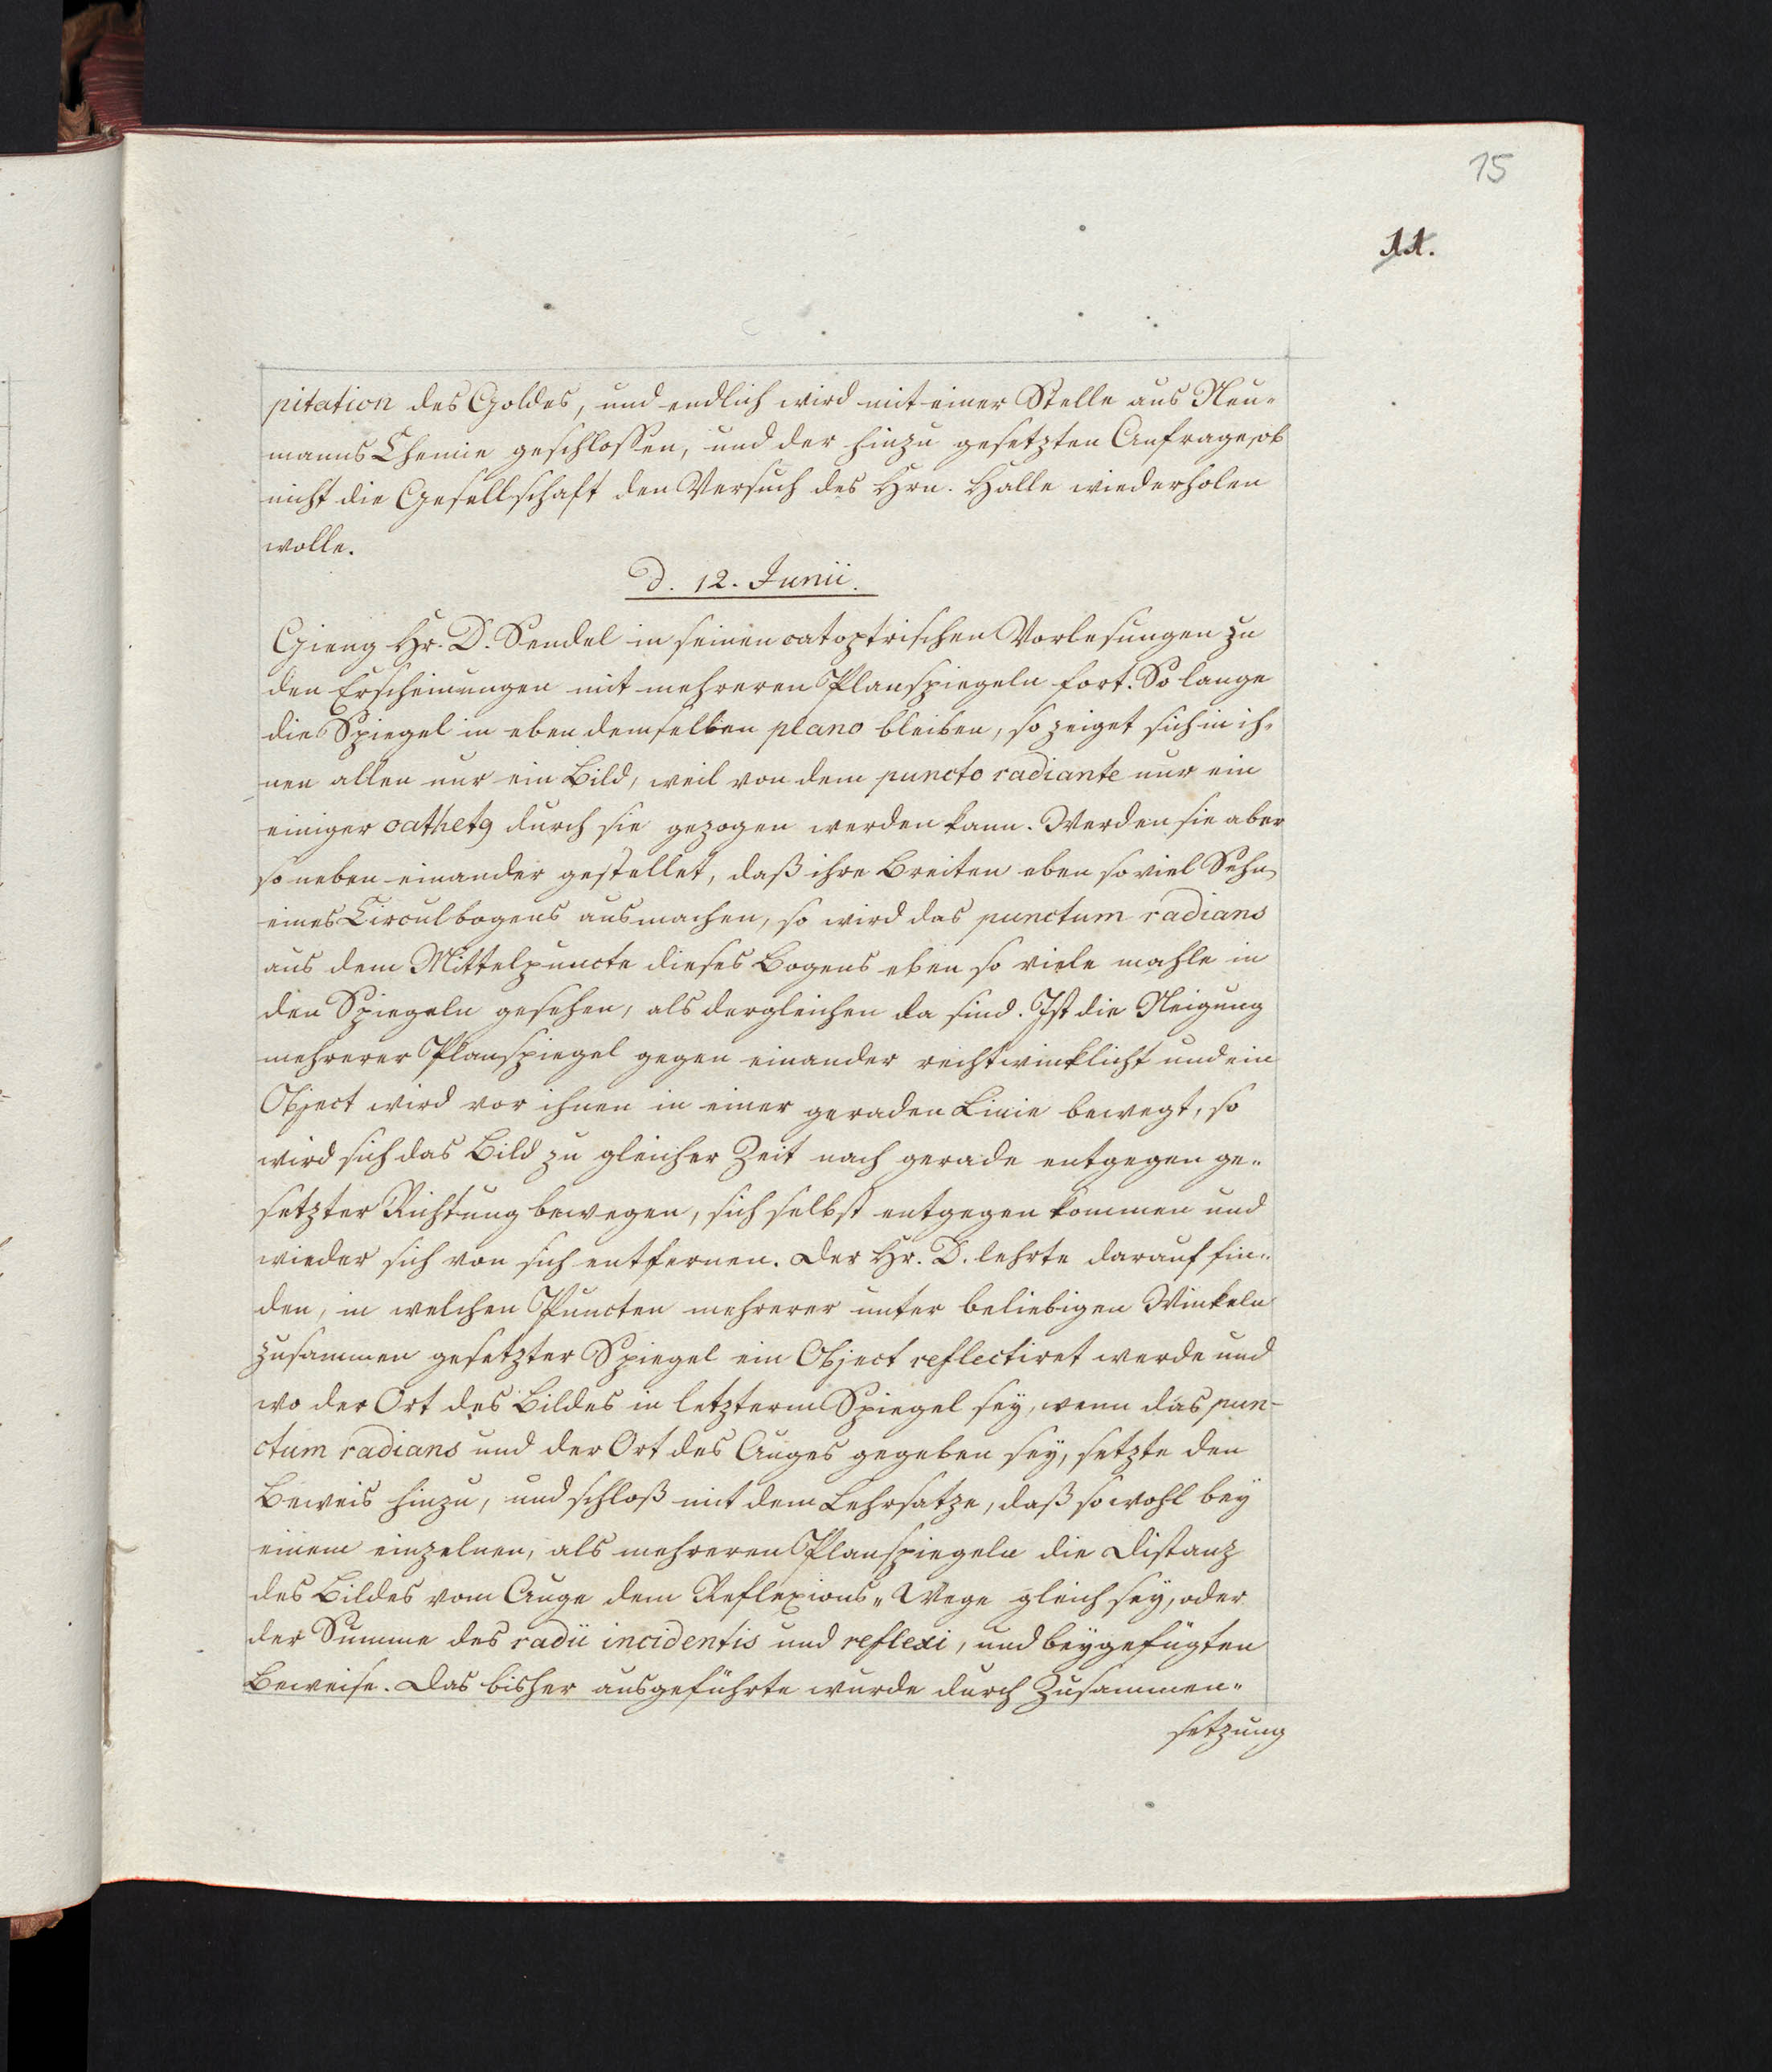 15
11.
pitation des Goldes, und endlich wird mit einer Stelle aus Neu-
manns Chemie geschlossen, und der hinzu gesetzten Anfrage, ob
nicht die Gesellschaft den Versuch des Hrn. Halle wiederholen
wolle.
d. 12. Junii.
Gieng Hr. D. Sendel in seinen catoptrischen Vorlesungen zu
den Erscheinungen mit mehreren Planspiegeln fort. So lange
die Spiegel in eben demselben plano bleiben, so zeiget sich in ih-
nen allen nur ein Bild, weil von dem puncto radiante nur ein
einiger cathetq durch sie gezogen werden kann. Werden sie aber
so neben einander gestellet, daß ihre Breiten eben so viel Sehn
eines Circulbogens ausmachen, so wird das punctum radians
aus dem Mittelpuncte dieses Bogens eben so viele mahle in
den Spiegeln gesehen, als dergleichen da sind. Ist die Neigung
mehrerer Planspiegel gegen einander rechtwinklicht und ein
Object wird vor ihnen in einer geraden Linie bewegt, so
wird sich das Bild zu gleicher Zeit nach gerade entgegen ge-
setzter Richtung bewegen, sich selbst entgegen kommen und
wieder sich von sich entfernen. Der Hr. D. lehrte darauf fin-
den, in welchen Puncten mehrerer unter beliebigen Winkeln
zusammen gesetzter Spiegel ein Object reflectiret werde und
wo der Ort des Bildes in letzterm Spiegel sey, wenn das pun-
ctum radians und der Ort des Auges gegeben sey, setzte den
Beweis hinzu, und schloß mit dem Lehrsatze, daß sowohl bey
einem einzelnen, als mehreren Planspiegeln die Distanz
des Bildes vom Auge dem Reflexions-Wege gleich sey, oder
der Summe des radii incidentis und reflexi, und beygefügten
Beweise. Das bisher ausgeführte wurde durch Zusammen-
setzung